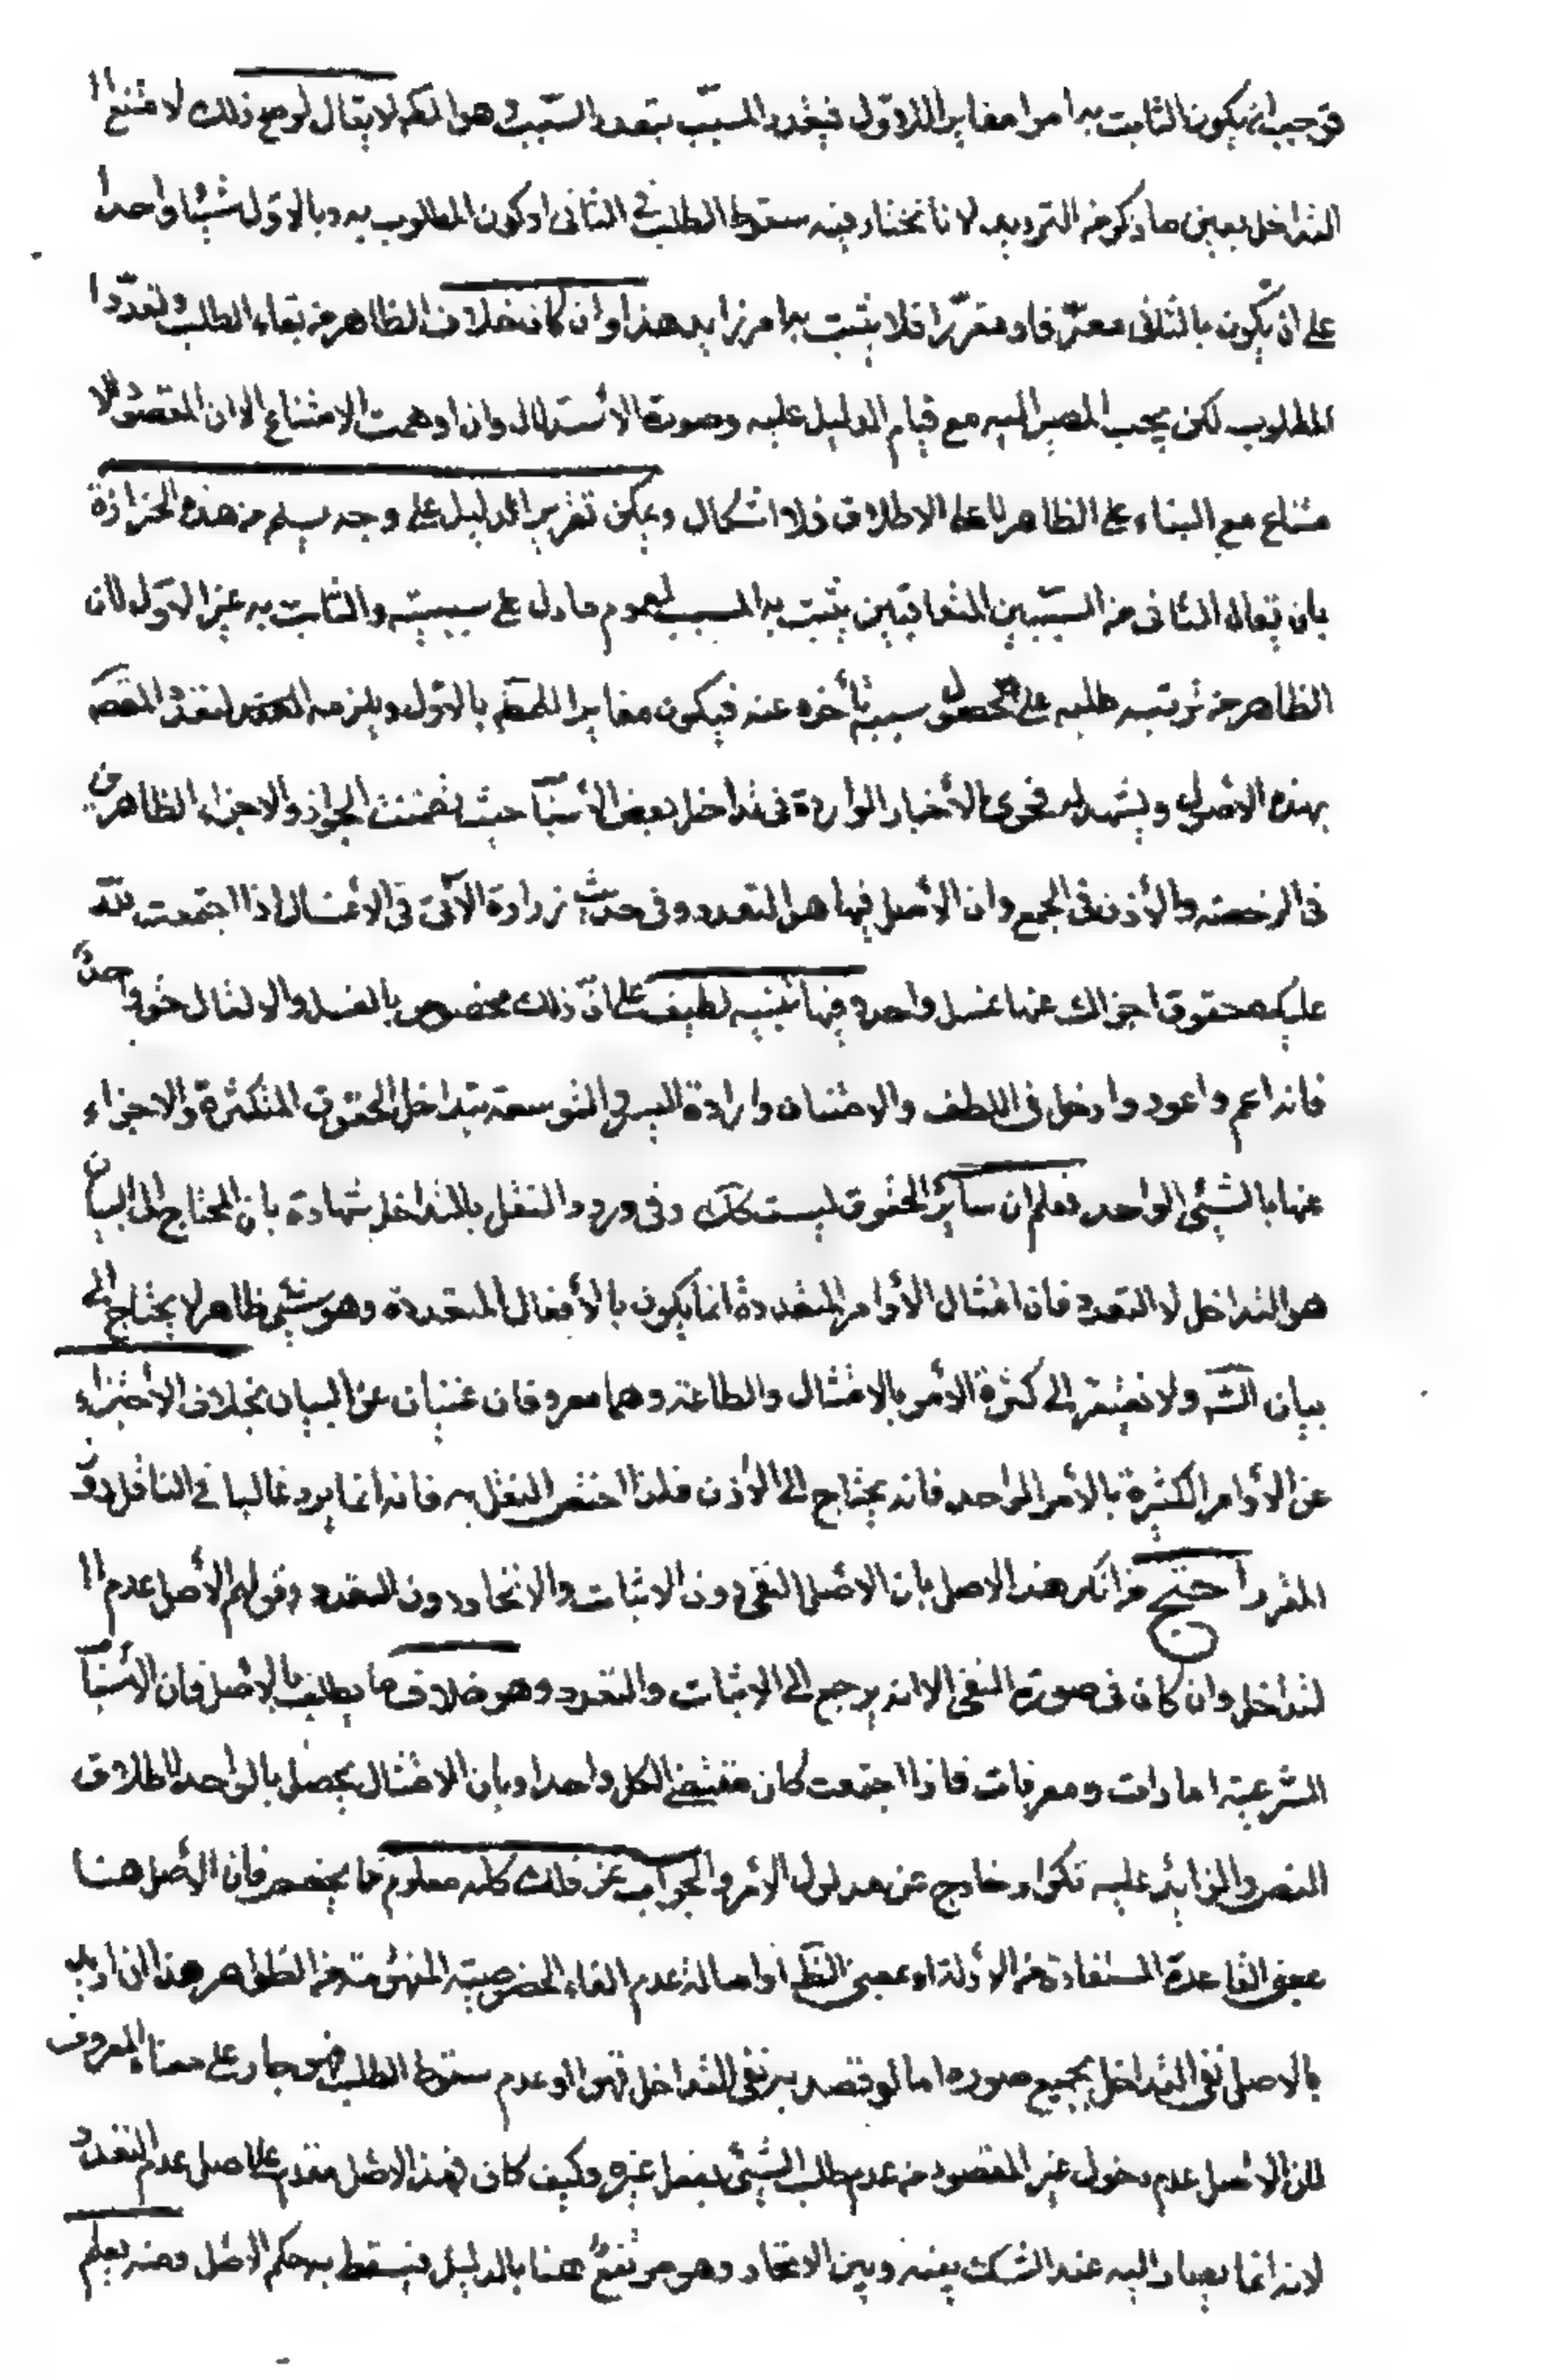 فوجب ان يكون الثابت به امرا مغايرا للاول فيتعدد المسبّب بتعدد السّبب و هو المط لا يقال لو صح ذلك لامتنع ا
التداخل بعين ما ذكر من الترديد لانا نختار فيه سقوط الطلب فى الثانى او كون المطلوب به و بالاول شيئا واحدا
على ان يكون بالثانى معرّفا و مقرّرا فلا يثبت به امر زايد هذا و ان كان خلاف الظاهر من بقاء الطلب و تعدّد ا
لمطلوب لكن يجب المصير اليه مع قيام الدليل عليه و صورة الأستدلال و ان اوهمت الامتناع الا ان المقصود الا
متناع مع البناء على الظاهر لا على الاطلاق فلا اشكال و يمكن تقرير الدليل على وجه يسلم من هذه الحزازة
بان يقال الثانى من السّببين المتعاقبين يثبت به المسبب لعموم ما دل على سببيته و الثابت به غير الاول لان
الظاهر من ترتيب طلبه على حصول سببه تأخره عنه فيكون مغايرا للمط بالاول و يلزمه التعدد
بهذه الاصل و يشهد له فحوى الأخبار الواردة فى تداخل بعض الأسبا حيث تضمنت الجواز و الاجزاء الظاهرين
فى الرخصة و الأذن فى الجمع و ان الأصل فيها هو التعدد و فى حديث زرارة الآتى فى الاغسال اذا اجتمعت لله
عليك حقوق اجزاك عنها غسل واحد و فيها تنبيه لطيف على ان ذلك مخصوص بالغسل و الا لقال حق واحد
فانه اعم و اعود و ادخل فى اللطف و الامتنان و ارادة اليسر و التوسعة بتداخل الحقوق المتكثرة و الاجزاء
عنها بالشيئ الواحد فعلم ان سائر الحقوق ليست كك و فى ورود النقل بالتداخل شهادة بان المحتاج الى البيان
هو التداخل لا التعدد فان امتثال الأوامر المتعددة انما يكون بالأفعال المتعددة و هو شيئ ظاهر لا يحتاج الى
بيان الش و لا يفتقر الى كثرة الأمر بالامتثال و الطاعة و هما معروفان غنيان عن البيان بخلاف الأجتزاء
عن الأوامر الكثيرة بالأمر الواحد فانه يحتاج الى الأذن فلذا اختص النقل به فانه انما يرد غالبا فى النافل دون
المقرر احتج من انكر هذا الاصل بان الاصل النفى دون الاثبات و الاتحاد دون التعدد و قولهم الأصل عدم ا
لتداخل و ان كان فى صورة النفى الا انه يرجع الى الاثبات و التعدد و هو خلاف ما يطلب بالاصل فان الأسبا
الشرعية امارات و معرفات فاذا اجتمعت كان مقتضى الكل واحدا و بان الامتثال يحصل بالواحد لاطلاق
النص و الزائد عليه تكرار خارج عن مدلول الأمر و الجواب عن ذلك كله معلوم مما فان الأصل هنا
بمعنى القاعدة المستفادة من الأدلة او بمعنى الظ او اصالة عدم الغاء الخصوصية المفهومة من الظواهر هذا ان اريد
بالاصل نفى التداخل بجميع صوره اما لو قصد به نفى التداخل قهرا او عدم سقوط الطلب فهو جار على معناه المعروف
لان الاصل عدم دخول غير المقصود من عدم طلب الشيئ بفعل غيره و كيف كان فهذا الاصل مقدم على اصل عدم التعدد
لانه انما يصار اليه عند الشك بينه و بين الاتحاد و هو مرتفع هنا بالدليل فيسقط به حكم الاصل و منه يعلم